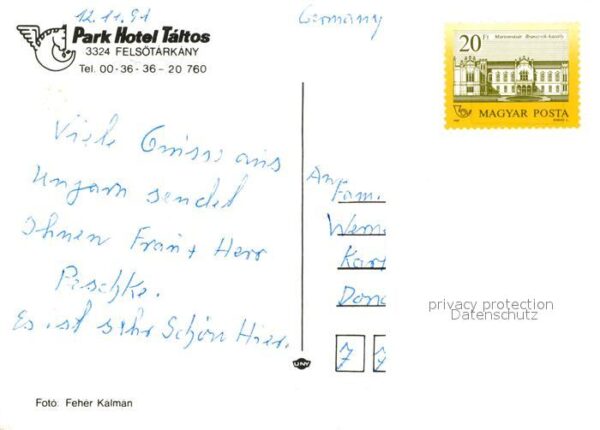 12.11.91
Germany
Park Hotel Táltos
3324 FELSŐTÁRKÁNY
Tel. 00-36-36-20 760
20 Ft
Martonvásár Brunszvik-kastély
MAGYAR POSTA
Viele Grüsse aus
Ungarn sendet
Ihnen Frau + Herr
Peschke.
Es ist sehr Schön Hier.
An
Fam.
Wern
Kar
Dona
7 7
privacy protection
Datenschutz
Fotó: Fehér Kálmán